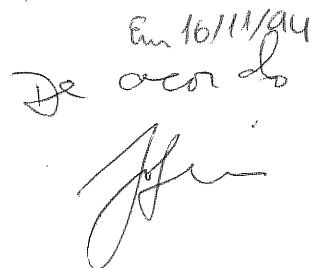 Em 16/11/94
De acordo